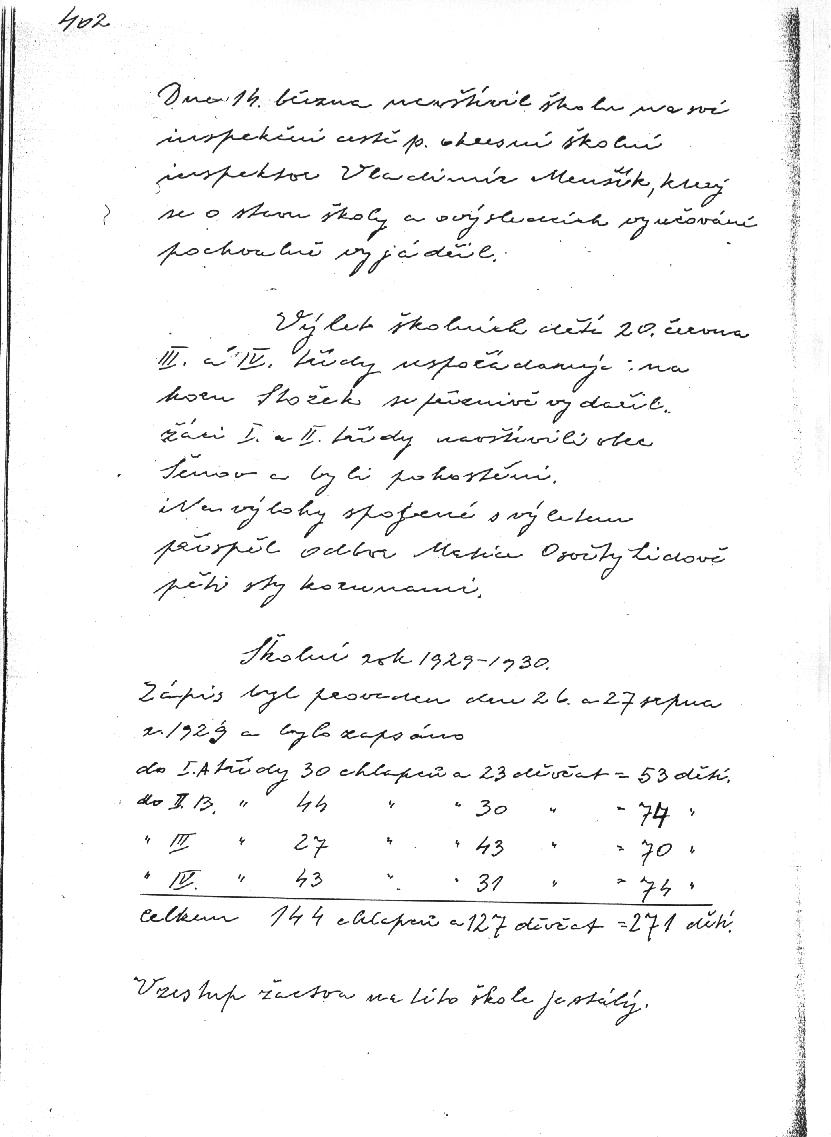 402
Dne 14. března navštívil školu na své
inspekční cestě p. okresní školní
inspektor Vladimír Menšík, který
se o stavu školy a o výsledcích vyučování
pochvalně vyjádřil.
Výlet školních dětí 20. června
III. a IV. třídy uspořádaný na
horu Stožek se příznivě vydařil.
žáci I. a II. třídy navštívili obec
Šenov a byli pohoštěni.
Na výlohy spojené s výletem
přispěl odbor Matice Osvěty Lidové
pěti sty korunami.
Školní rok 1929-1930.
Zápis byl prováden dne 26. a 27 srpna
r. 1929 a bylo zapsáno
do I.A třídy 30 chlapců a 23 děvčat = 53 dětí.
do II. B. " 44 " " 30 " = 74 "
" III " 27 " " 43 " = 70 "
" IV. " 43 " " 31 " = 74 "
celkem 144 chlapců a 127 děvčat = 271 dětí.
Vzestup žactva na této škole je stálý.